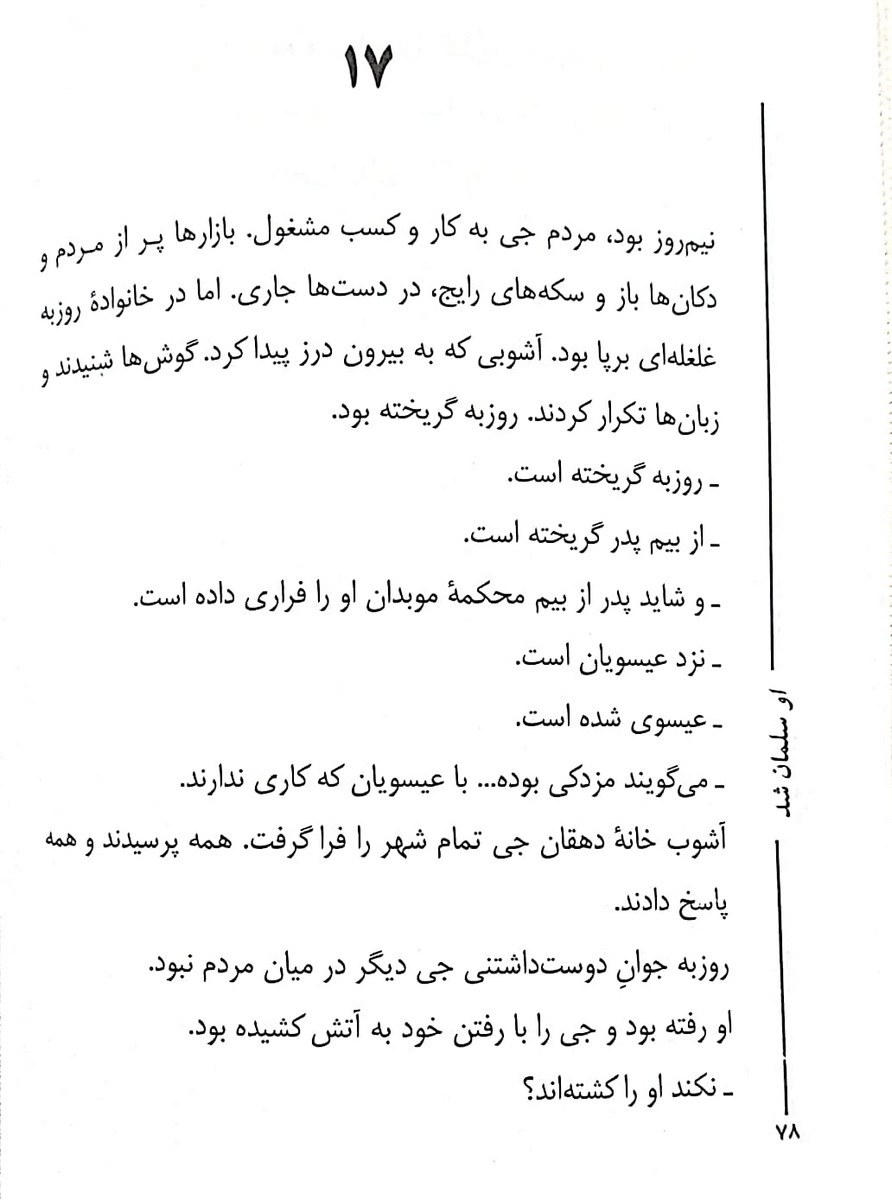 ۱۷
نیم‌روز بود، مردم جی به کار و کسب مشغول. بازارها پر از مردم و
دکان‌ها باز و سکه‌های رایج، در دست‌ها جاری. اما در خانوادهٔ روزبه
غلغله‌ای برپا بود. آشوبی که به بیرون درز پیدا کرد. گوش‌ها شنیدند و
زبان‌ها تکرار کردند. روزبه گریخته بود.
ـ روزبه گریخته است.
ـ از بیم پدر گریخته است.
ـ و شاید پدر از بیم محکمهٔ موبدان او را فراری داده است.
ـ نزد عیسویان است.
ـ عیسوی شده است.
ـ می‌گویند مزدکی بوده... با عیسویان که کاری ندارند.
آشوب خانهٔ دهقان جی تمام شهر را فرا گرفت. همه پرسیدند و همه
پاسخ دادند.
روزبه جوانِ دوست‌داشتنی جی دیگر در میان مردم نبود.
او رفته بود و جی را با رفتن خود به آتش کشیده بود.
ـ نکند او را کشته‌اند؟
او سلمان شد
۷۸